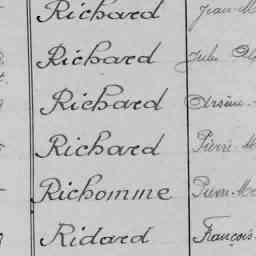 Richard Jean-M
Richard Jules
Richard Arsène
Richard Pierre M
Richomme Pierre-M
Ridard François